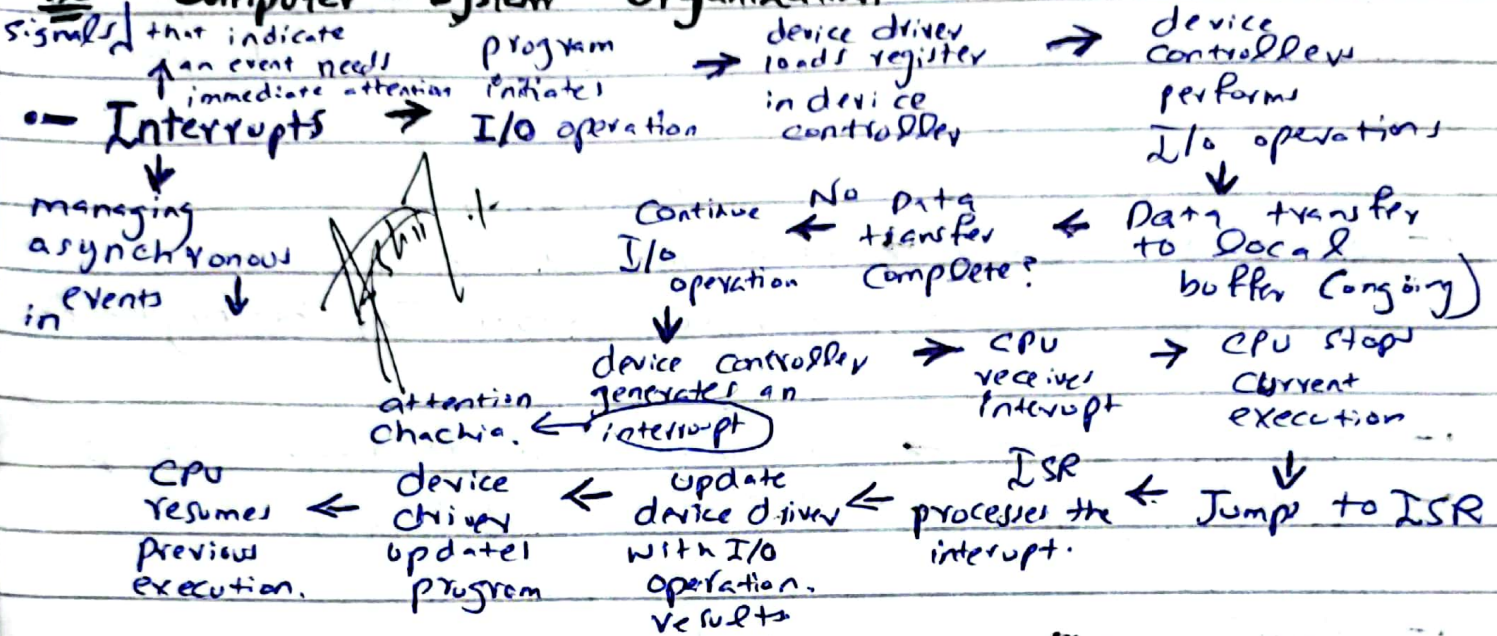 Computer System Organization
signals] that indicate
an event needs
immediate attention
•- Interrupts → program
initiates
I/O operation
→ device driver
loads register
in device
controller
→ device
controllers
performs
I/o operations
↓
managing
asynchronous
events ↓
in
Data transfer
to local
buffer (ongoing)
← Data
transfer
complete?
No
← Continue
I/o
operation
↓
device controller
generates an
interrupt
← attention
chachia.
→ CPU
receives
interupt
→ CPU stops
current
execution
↓
Jumps to ISR
← ISR
processes the
interupt.
← update
device driver
with I/O
operation.
results
← device
driver
updates
program
← CPU
resumes
previous
execution.